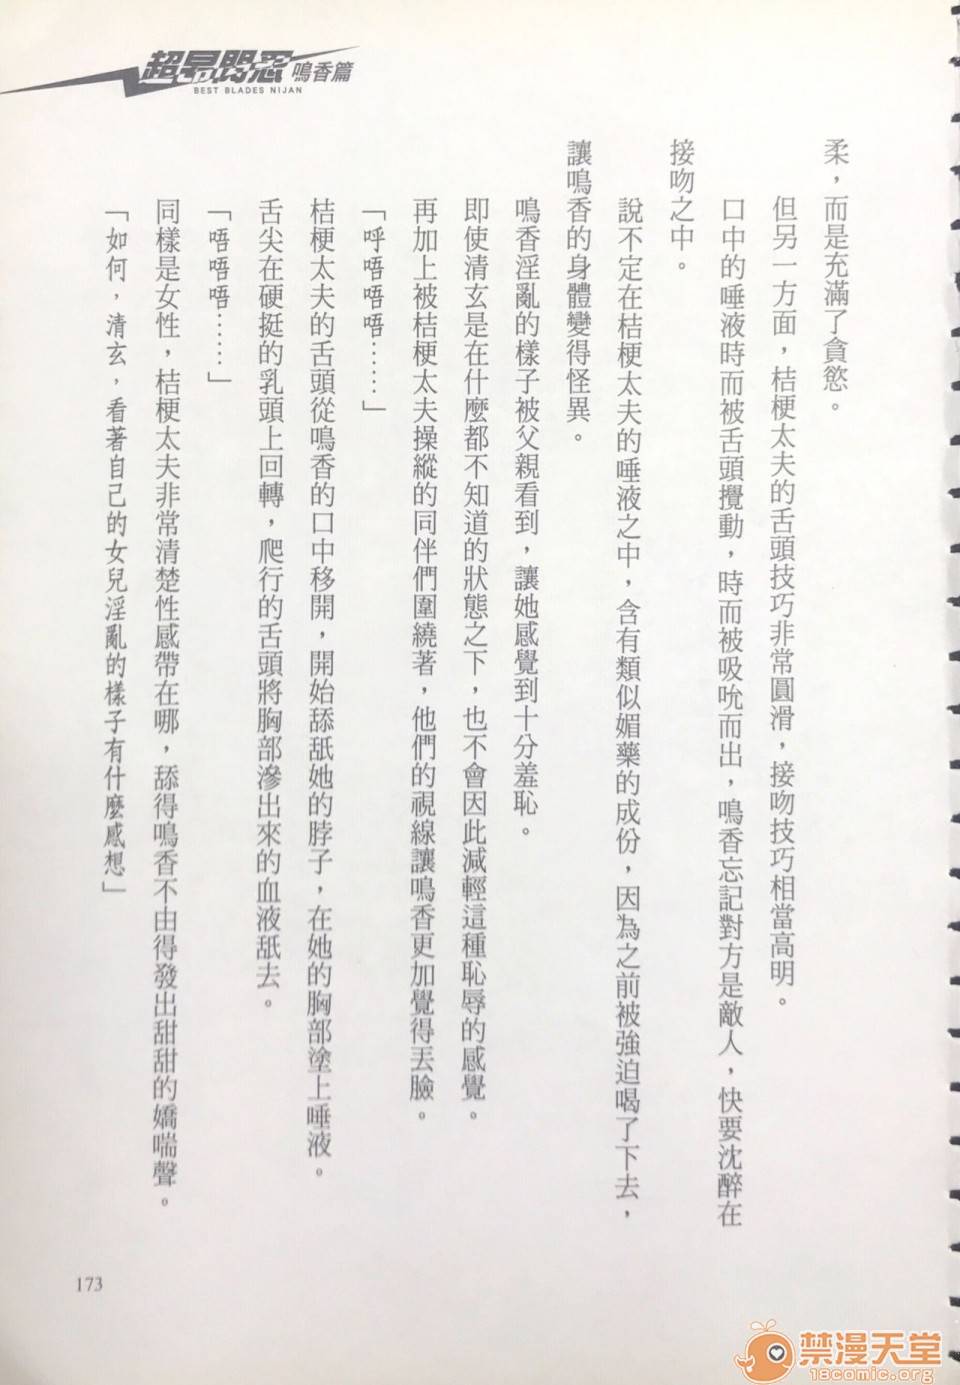 超昂閃忍 鳴香篇
BEST BLADES NIJAN
柔，而是充滿了貪慾。
但另一方面，桔梗太夫的舌頭技巧非常圓滑，接吻技巧相當高明。
口中的唾液時而被舌頭攪動，時而被吸吮而出，鳴香忘記對方是敵人，快要沈醉在
接吻之中。
說不定在桔梗太夫的唾液之中，含有類似媚藥的成份，因為之前被強迫喝了下去，
讓鳴香的身體變得怪異。
鳴香淫亂的樣子被父親看到，讓她感覺到十分羞恥。
即使清玄是在什麼都不知道的狀態之下，也不會因此減輕這種恥辱的感覺。
再加上被桔梗太夫操縱的同伴們圍繞著，他們的視線讓鳴香更加覺得丟臉。
「呼唔唔唔……」
桔梗太夫的舌頭從鳴香的口中移開，開始舔舐她的脖子，在她的胸部塗上唾液。
舌尖在硬挺的乳頭上回轉，爬行的舌頭將胸部滲出來的血液舐去。
「唔唔唔……」
同樣是女性，桔梗太夫非常清楚性感帶在哪，舔得鳴香不由得發出甜甜的嬌喘聲。
「如何，清玄，看著自己的女兒淫亂的樣子有什麼感想」
173
禁漫天堂
18comic.org